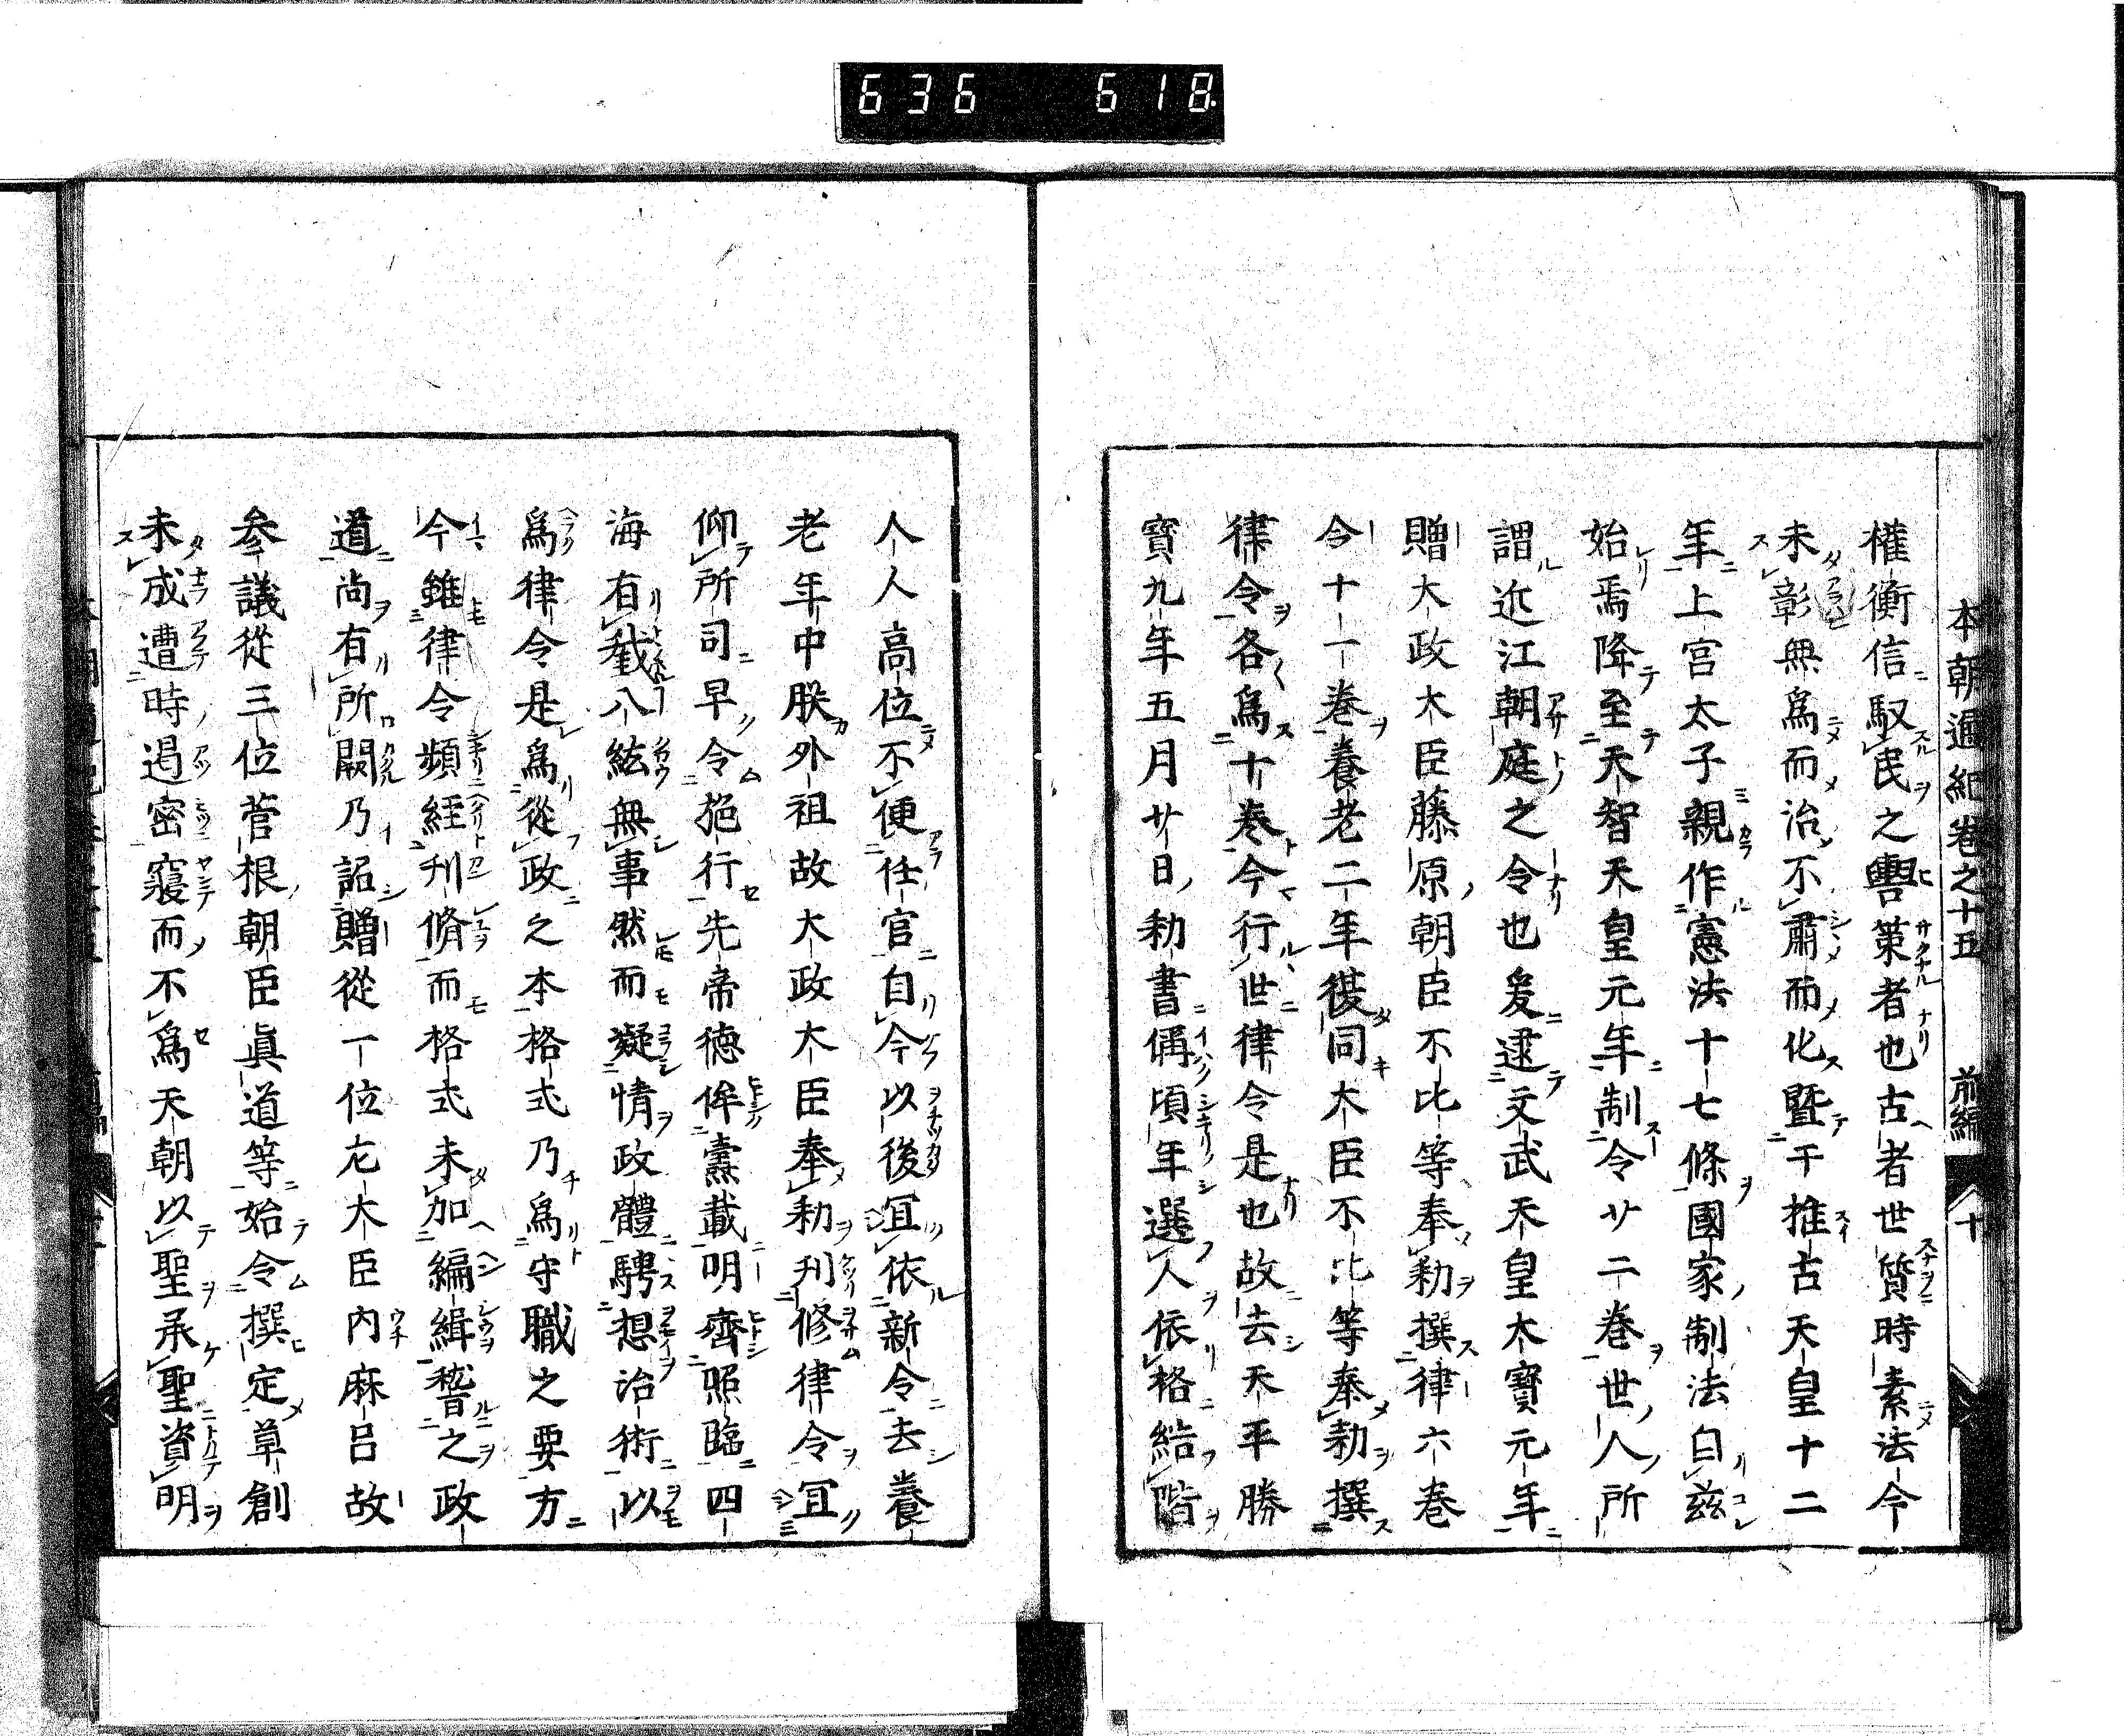 636 618
本朝通紀卷之十五 前編 十
權衡信馭民之轡策者也古者世質時素法令
未彰無爲而治不肅而化曁于推古天皇十二
年上宮太子親作憲法十七條國家制法自兹
始焉降至天智天皇元年制令廿二卷世人所
謂近江朝庭之令也爰逮文武天皇大寶元年
贈大政大臣藤原朝臣不比等奉勅撰律六卷
令十一卷養老二年復同大臣不比等奉勅撰
律令各爲十卷今行世律令是也故去天平勝
寶九年五月廿日勅書偁頃年選人依格結階
人人高位不便任官自今以後宜依新令去養
老年中朕外祖故大政大臣奉勅刋修律令宜
仰所司早令施行先帝徳侔燾載明齊照臨四
海有截八紘無事然而凝情政體騁想治術以
爲律令是爲從政之本格式乃爲守職之要方
今雖律令頻經刋脩而格式未加編緝稽之政
道尚有所闕乃詔贈從一位左大臣内麻呂故
參議從三位菅根朝臣眞道等始令撰定草創
未成遭時遏密寢而不爲天朝以聖承聖資明